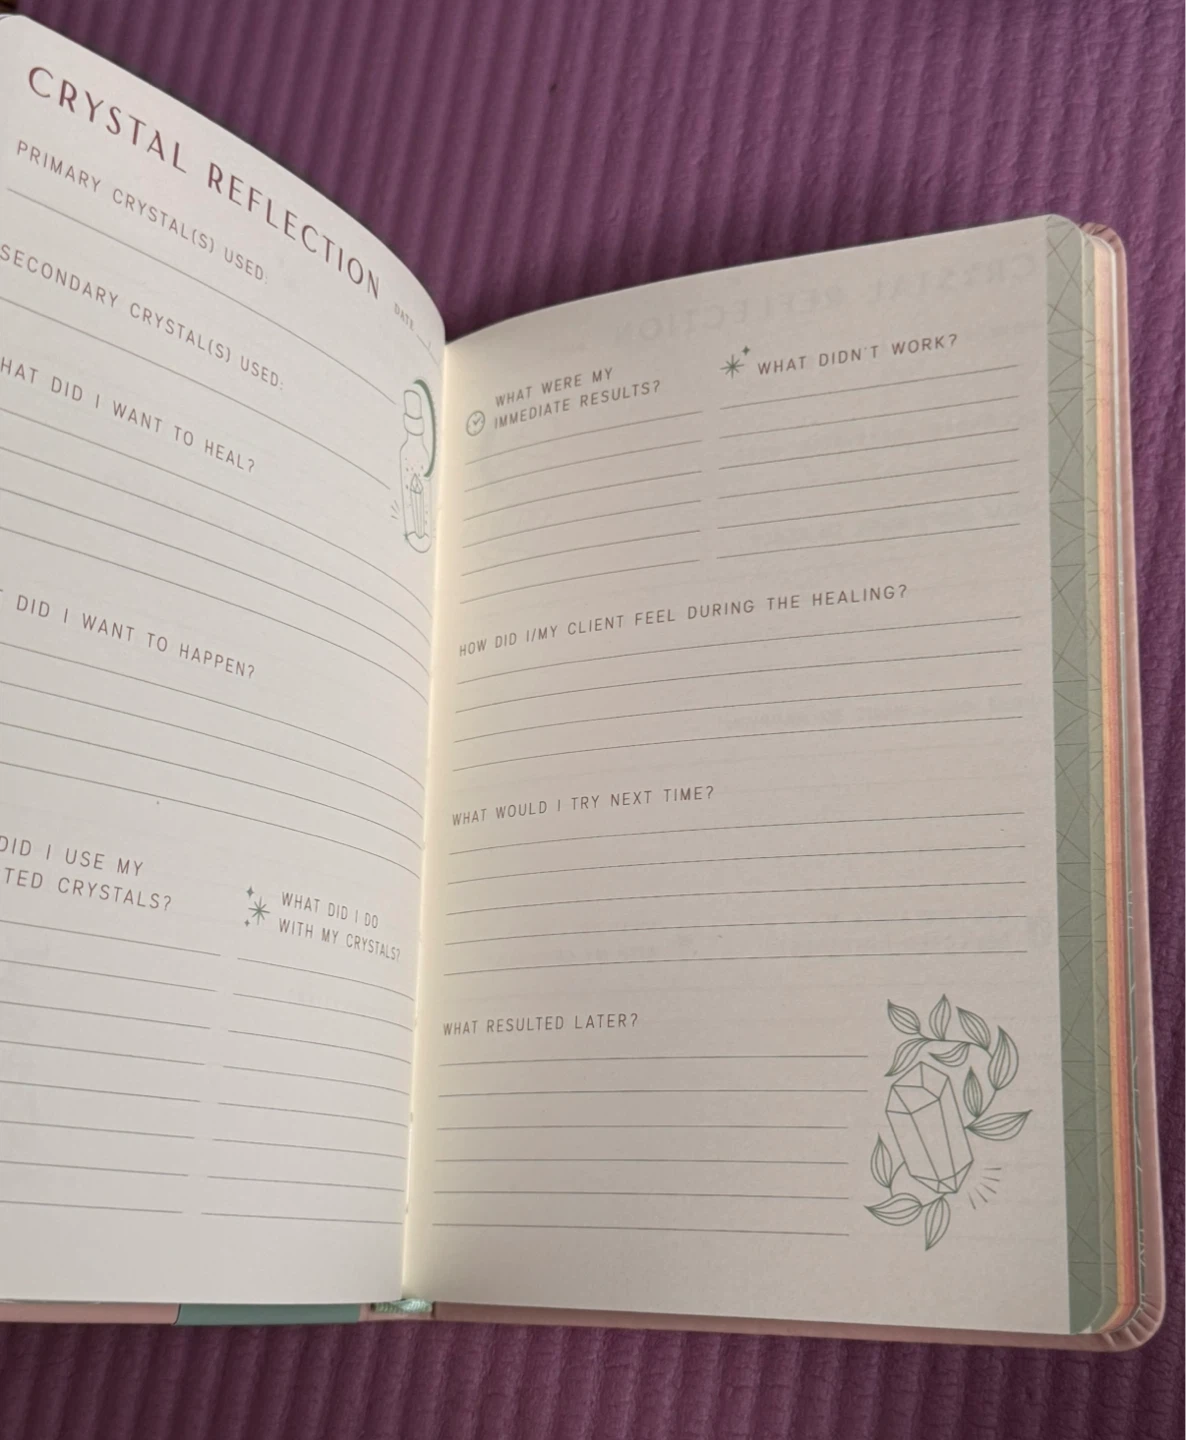 CRYSTAL REFLECTION
DATE
PRIMARY CRYSTAL(S) USED:
SECONDARY CRYSTAL(S) USED:
HAT DID I WANT TO HEAL?
T DID I WANT TO HAPPEN?
DID I USE MY
TED CRYSTALS?
WHAT DID I DO
WITH MY CRYSTALS?
WHAT WERE MY
IMMEDIATE RESULTS?
WHAT DIDN'T WORK?
HOW DID I/MY CLIENT FEEL DURING THE HEALING?
WHAT WOULD I TRY NEXT TIME?
WHAT RESULTED LATER?